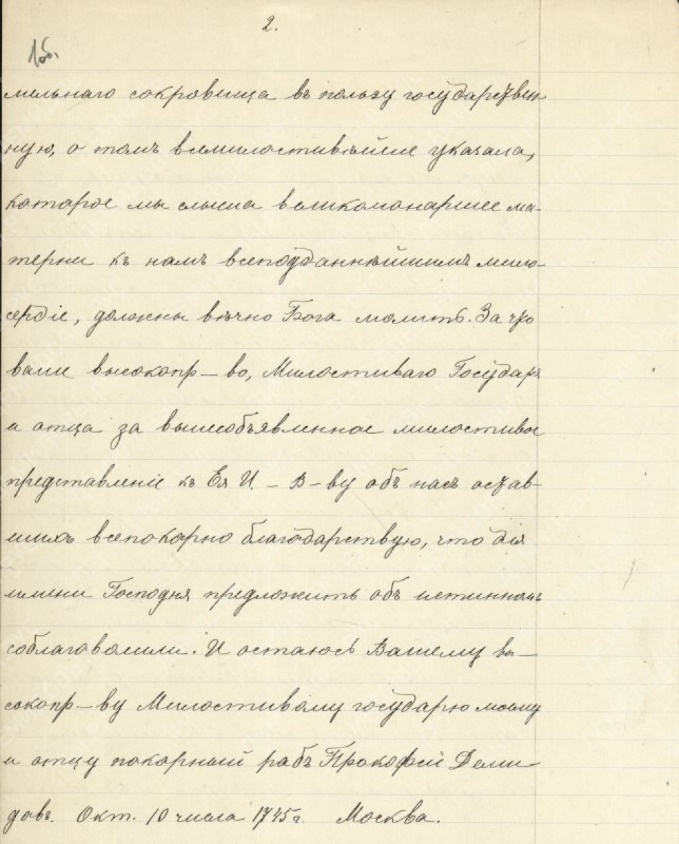 2.
15.
мельнаго сокровища въ пользу государствен
ную, о томъ всемилостивѣйше указала,
которое мы слыша великомонаршее ма-
терни къ намъ всеподданнѣйшимъ мило-
сердіе, должны вѣчно Бога молить. За что
ваше высокопр-во, Милостиваго Государя
и отца за вышеобъявленное милостивое
представленіе къ Ея И. - В-ву объ насъ остав-
шихъ всепокорно благодарствую, что для
имени Господня предложить объ истинномъ
соблаговолили. И остаюсь Вашему вы-
сокопр-ву Милостивому государю моему
и отцу покорный рабъ Прокофій Деми-
довъ. Окт. 10 числа 1745г. Москва.